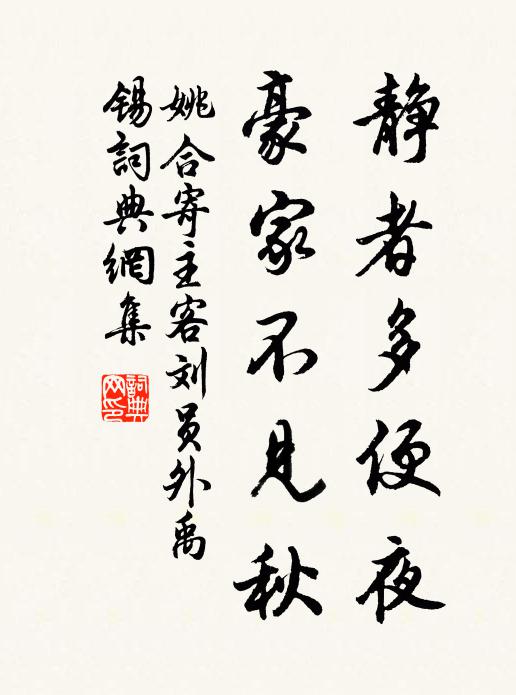 静者多便夜
豪家不见秋
姚合寄主客刘员外禹
锡詞典網集
詞典
网印